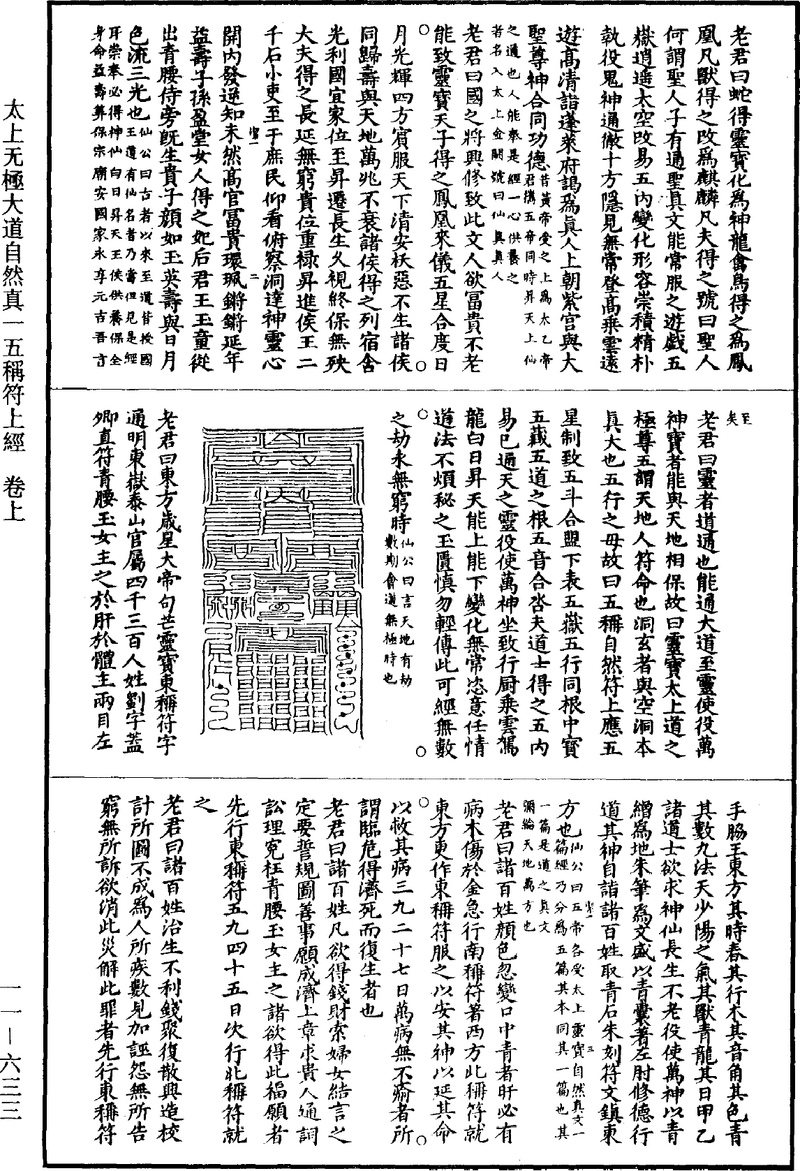 太上无極大道自然真一五稱符上經 卷上
一一—六三三
老君曰蛇得靈寶化為神龍禽鳥得之為鳳
凰凡獸得之改為麒麟凡夫得之號曰聖人
何謂聖人子有通聖真文能常服之遊戲五
嶽逍遙太空改易五內變化形容崇積精朴
執役鬼神通徹十方隱見無常登高乘雲遠
遊高清詣蓬萊府謁為真人上朝紫宮與大
聖尊神合同功德昔黃帝受之上為太乙帝君搆五帝同時昇天上仙
之道也人能奉是經一心供養之者名入太上金闕號曰仙真人
老君曰國之將興修致此文人欲富貴不老
能致靈寶天子得之鳳凰來儀五星合度日
月光輝四方賓服天下清安祅惡不生諸侯
同歸壽與天地萬兆不衰諸侯得之列宿舍
光利國宜家位至昇遷長生久視終保無殃
大夫得之長延無窮貴位重祿昇進侯王二
千石小吏至于庶民仰看俯察洞達神靈心
開內發逆知未然高官冨貴環珮鏘鏘延年
益壽子孫盈堂女人得之妃后君王玉童從
出青腰侍旁既生貴子顏如玉英壽與日月
色流三光也仙公曰古者以來至道皆授國王道有仙名者乃當但見是經
耳崇奉必得神仙向日昇天王侯供養保全身命益壽筭保宗廟安國家永享元吉吾言
至矣
老君曰靈者道通也能通大道至靈使役萬
神寶者能與天地相保故曰靈寶太上道之
極尊五謂天地人符命也洞玄者與空洞本
真大也五行之母故曰五稱自然符上應五
星制致五斗合盟下表五嶽五行同根中寶
五藏五道之根五音合沓夫道士得之五內
易已通天之靈役使萬神坐致行厨乘雲駕
龍白日昇天能上能下變化無常恣意任情
道法不煩秘之玉匱慎勿輕傳此可經無數
之劫永無窮時仙公曰言天地有劫數期會道無極時也
老君曰東方歲星大帝句芒靈寶東稱符字
通明東嶽泰山官屬四千三百人姓劉字蓋
卿直符青腰玉女主之於肝於體主兩目左
手脇王東方其時春其行木其音角其色青
其數九法天少陽之氣其獸青龍其日甲乙
諸道士欲求神仙長生不老役使萬神以青
繒為地朱筆為文盛以青囊著左肘修德行
道其神自詣諸百姓取青石朱刻符文鎮東
方也仙公曰五帝各受太上靈寶自然真文一篇經乃分為五篇其本同其一篇也其
一篇是道之真文彌綸天地萬方也
老君曰諸百姓顏色忽變口中青者肝必有
病木傷於金急行南稱符著西方此稱符就
東方更作東稱符服之以安其神以延其命
以救其病三九二十七日萬病無不瘉者所
謂臨危得濟死而復生者也
老君曰諸百姓凡欲得錢財索婦女結言之
定要誓規圖善事願成濟上章求貴人通詞
訟理冤枉青腰玉女主之諸欲得此福願者
先行東稱符五九四十五日次行北稱符就
之
老君曰諸百姓治生不利錢聚復散興造校
計所圖不成為人所疾數見加誣怨無所告
窮無所訴欲消此災解此罪者先行東稱符